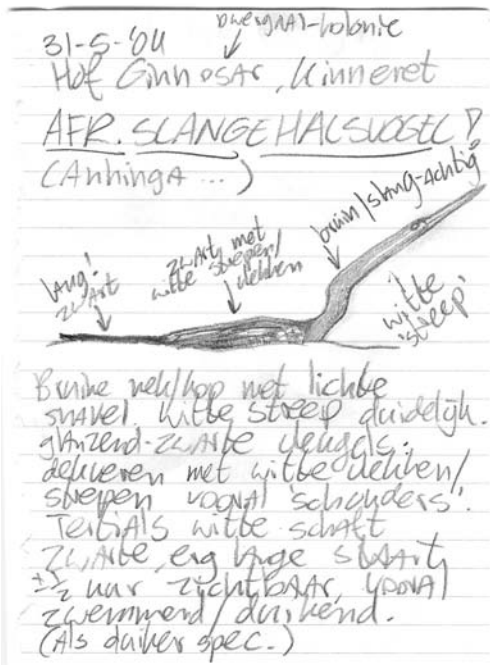 dwergaal-kolonie
31-5-'04
Hof Ginnosar, Kinneret
AFR. SLANGEHALSVOGEL!
(Anhinga ...)
bruin/slang-achtig
zwart met
witte strepen/
vlekken
lang!
zwart
witte
'streep'
Bruine nek/kop met lichte
snavel. Witte streep duidelijk.
glanzend-zwarte vleugels.
dekveren met witte vlekken/
strepen vooral 'schouders'.
Tertials witte schaft
zwarte, erg lange staart,
± ½ uur zichtbaar, vooral
zwemmend/duikend.
(Als duiker spec.)